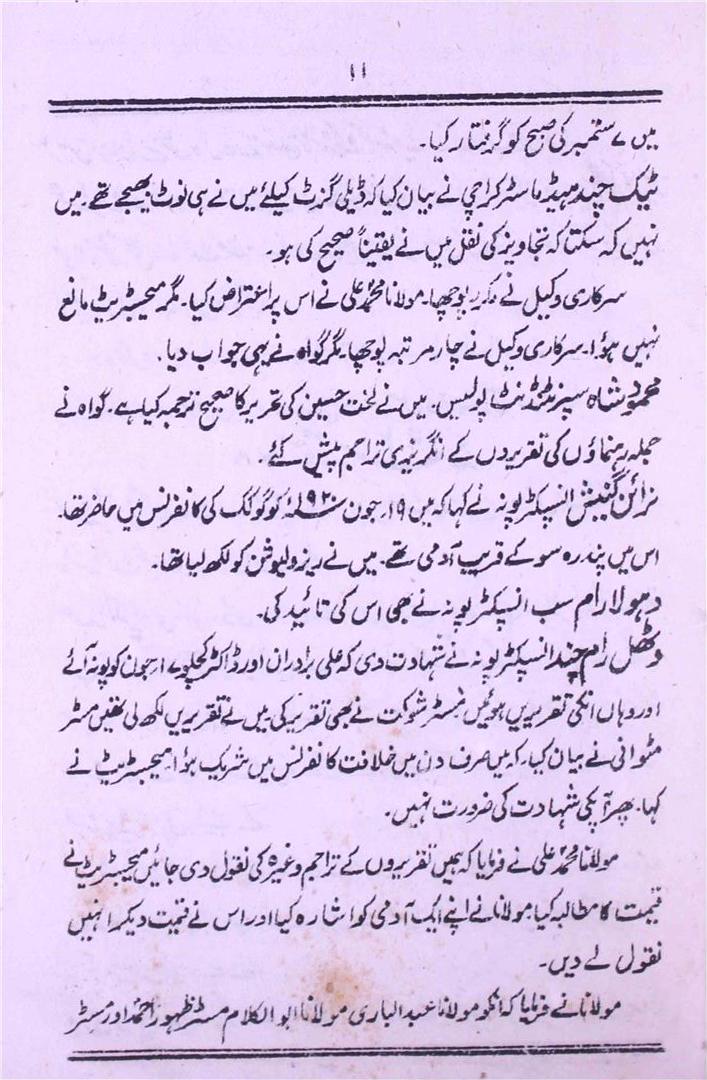 ۱۱
میں ۷ ستمبر کی صبح کو گرفتار کیا۔
ٹیک چند ہیڈ ماسٹر کراچی نے بیان کیا کہ ڈیلی گزٹ کیلئے میں نے ہی نوٹ بھیجے تھے۔ میں
نہیں کہ سکتا کہ تجاویز کی نقل میں نے یقیناً صحیح کی ہو۔
سرکاری وکیل نے مکرر پوچھا۔ مولانا محمد علی نے اس پر اعتراض کیا۔ مگر مجسٹریٹ مانع
نہیں ہؤا۔ سرکاری وکیل نے چار مرتبہ پوچھا۔ مگر گواہ نے یہی جواب دیا۔
محمود شاہ سپرنٹنڈنٹ پولیس۔ میں نے لخت حسین کی تحریر کا صحیح ترجمہ کیا ہے۔ گواہ نے
جملہ رہنماؤں کی تقریروں کے انگریزی تراجم پیش کئے۔
نرائن گنیش انسپکٹر پونہ نے کہا کہ میں ۱۹۔ جون ۱۹۲۰ء کو گوکک کی کانفرنس میں حاضر تھا۔
اس میں پندرہ سو کے قریب آدمی تھے۔ میں نے ریزولیوشن کو لکھ لیا تھا۔
دہولا رام سب انسپکٹر پونہ نے بھی اس کی تائید کی۔
وٹھل رام چندر انسپکٹر پونہ نے شہادت دی کہ علی برادران اور ڈاکٹر کچلو ۱۷ جون کو پونہ آئے
اور وہاں انکی تقریریں ہوئیں مسٹر شوکت نے بھی تقریر کی میں نے تقریریں لکھ لی تھیں مسٹر
مٹوانی نے بیان کیا۔ کہ میں صرف دن میں خلافت کانفرنس میں شریک ہؤا۔ مجسٹریٹ نے
کہا۔ پھر آپکی شہادت کی ضرورت نہیں۔
مولانا محمد علی نے فرمایا کہ ہمیں تقریروں کے تراجم وغیرہ کی نقول دی جائیں مجسٹریٹ نے
قیمت کا مطالبہ کیا مولانا نے اپنے ایک آدمی کو اشارہ کیا اور اس نے قیمت دیکر انہیں
نقول لے دیں۔
مولانا نے فرمایا کہ انکو مولانا عبد الباری مولانا ابو الکلام مسٹر ظہور احمد اور مسٹر